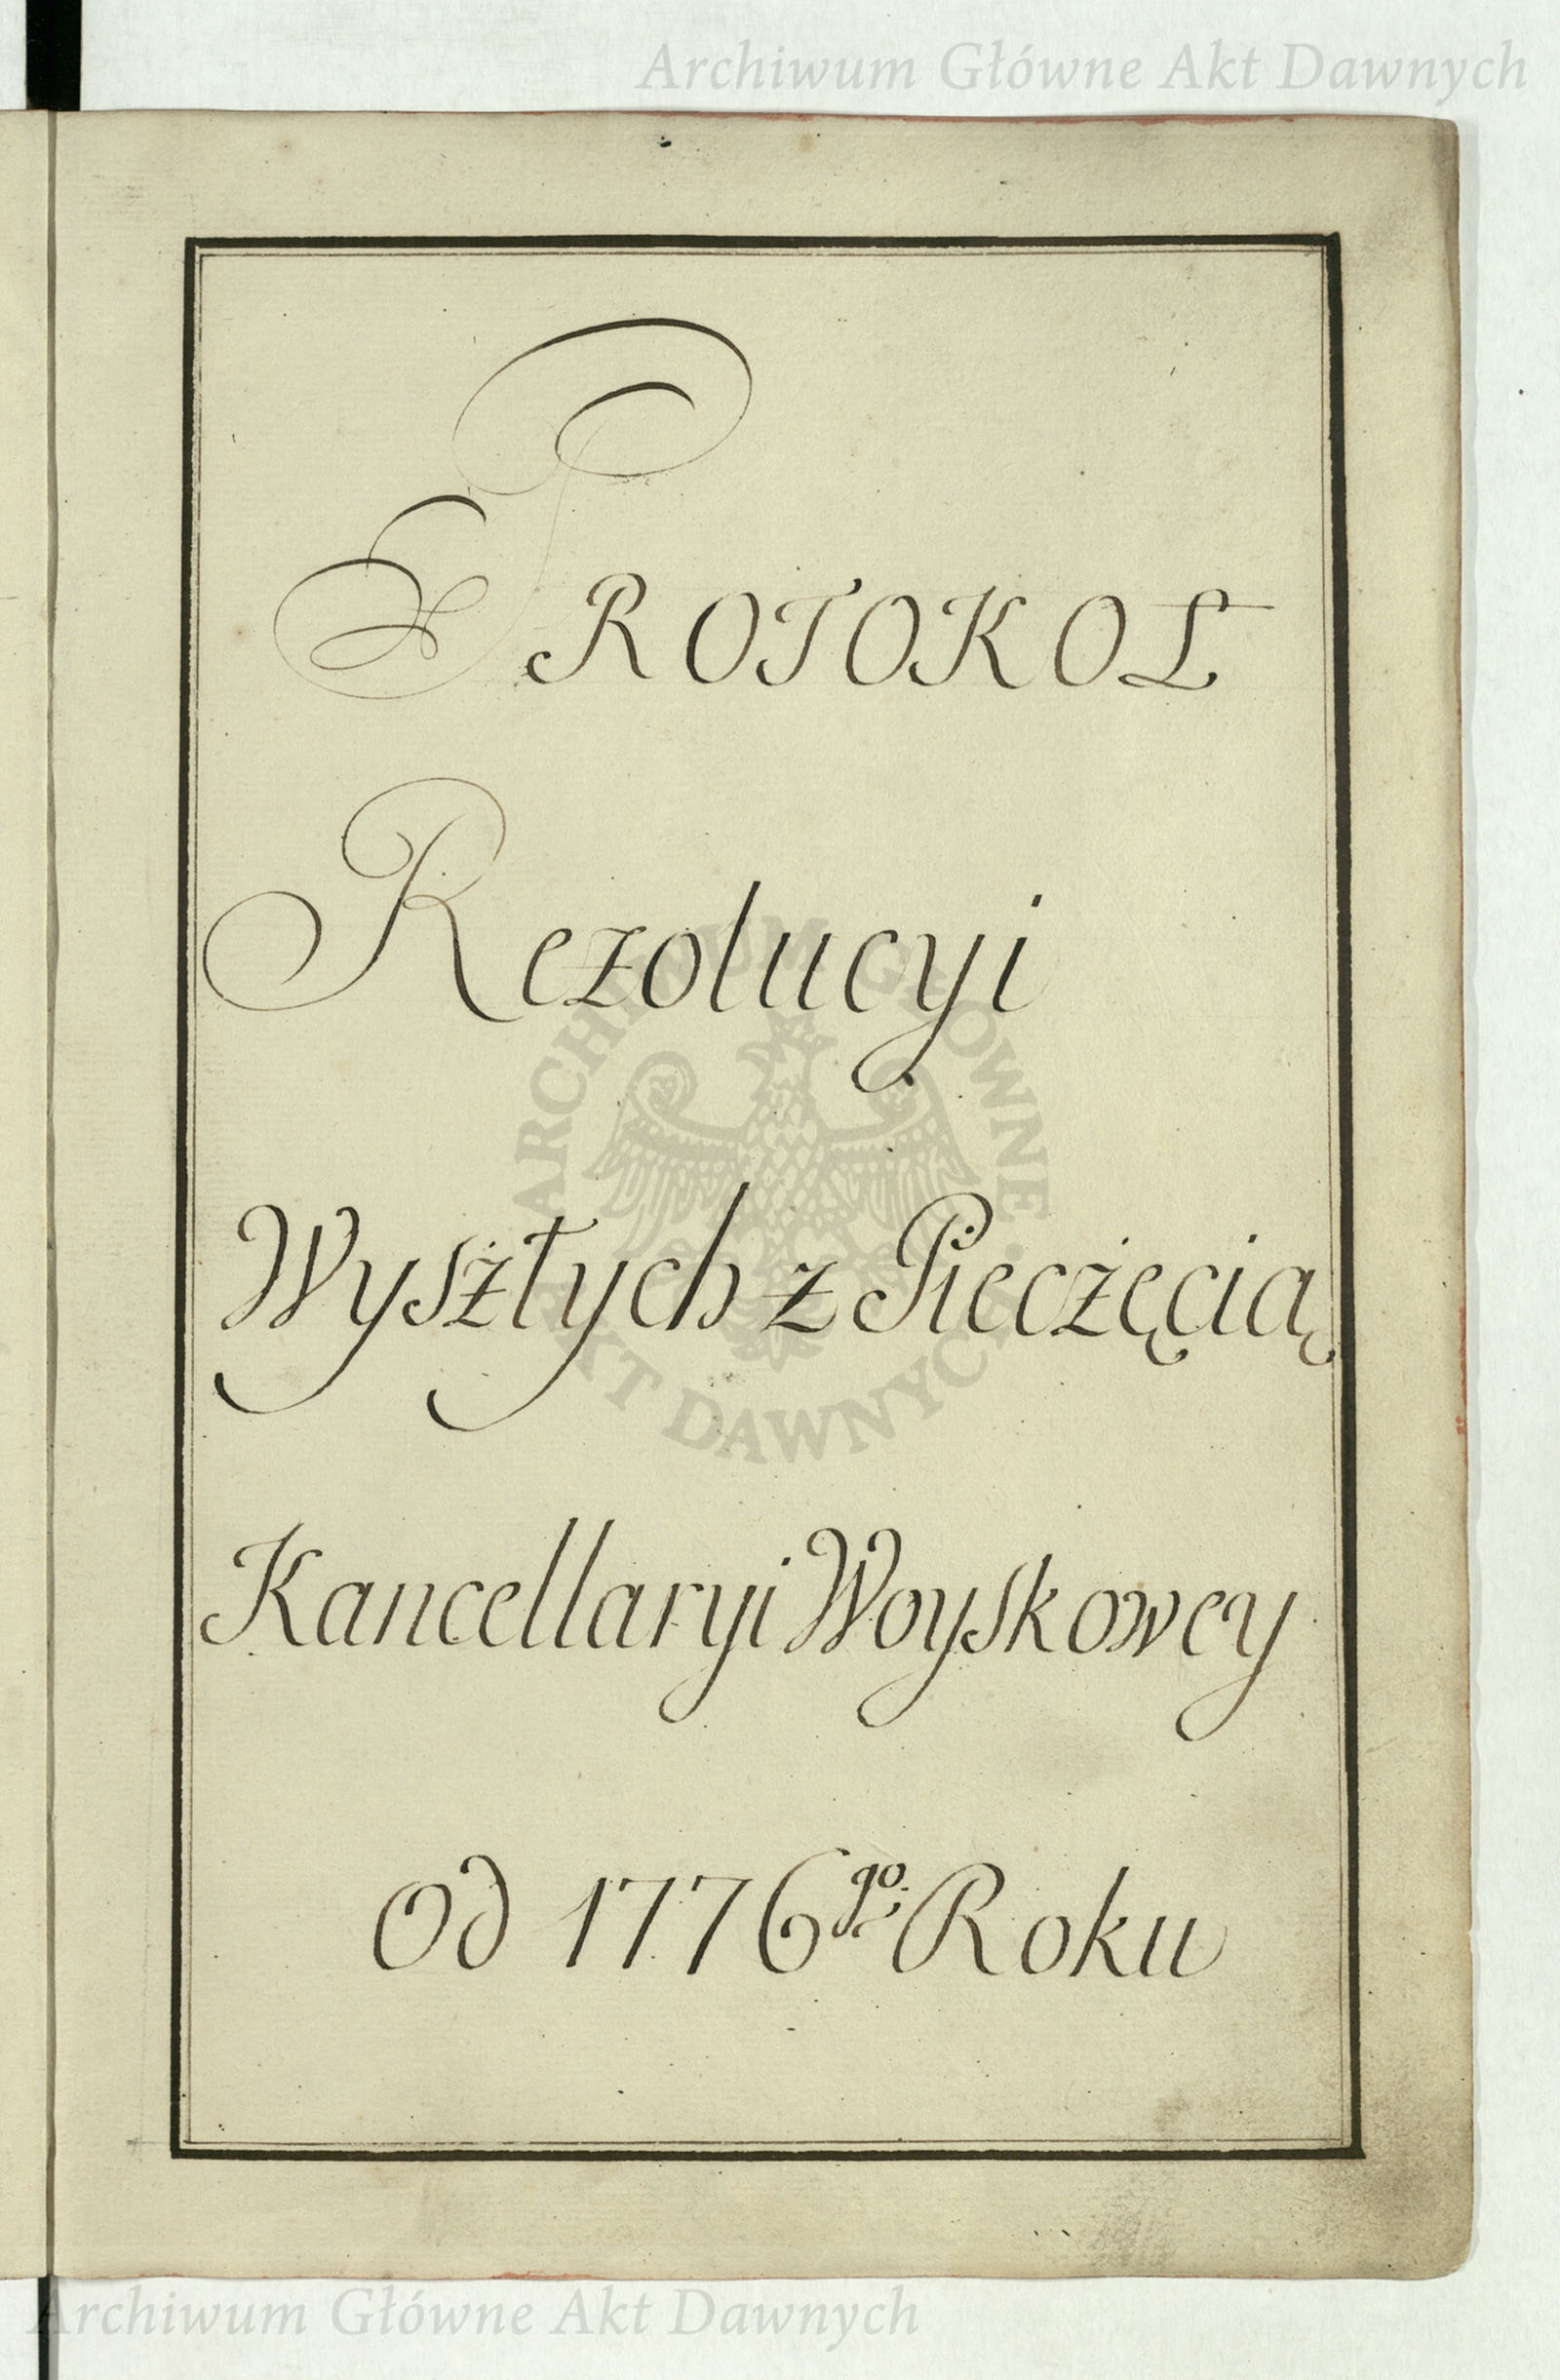 Archiwum Główne Akt Dawnych
PROTOKOŁ
Rezolucyi
Wyszłych z Pieczęcią
Kancellaryi Woyskowey
Od 1776go Roku
ARCHIWUM GŁÓWNE
AKT DAWNYCH
Archiwum Główne Akt Dawnych